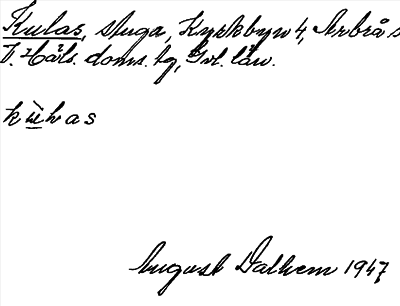 Kulas, stuga, Kyrkbyn 4, Arbrå s
V. Häls. doms. tg, Gvl. län.
kùlas
August Dalhem 1947